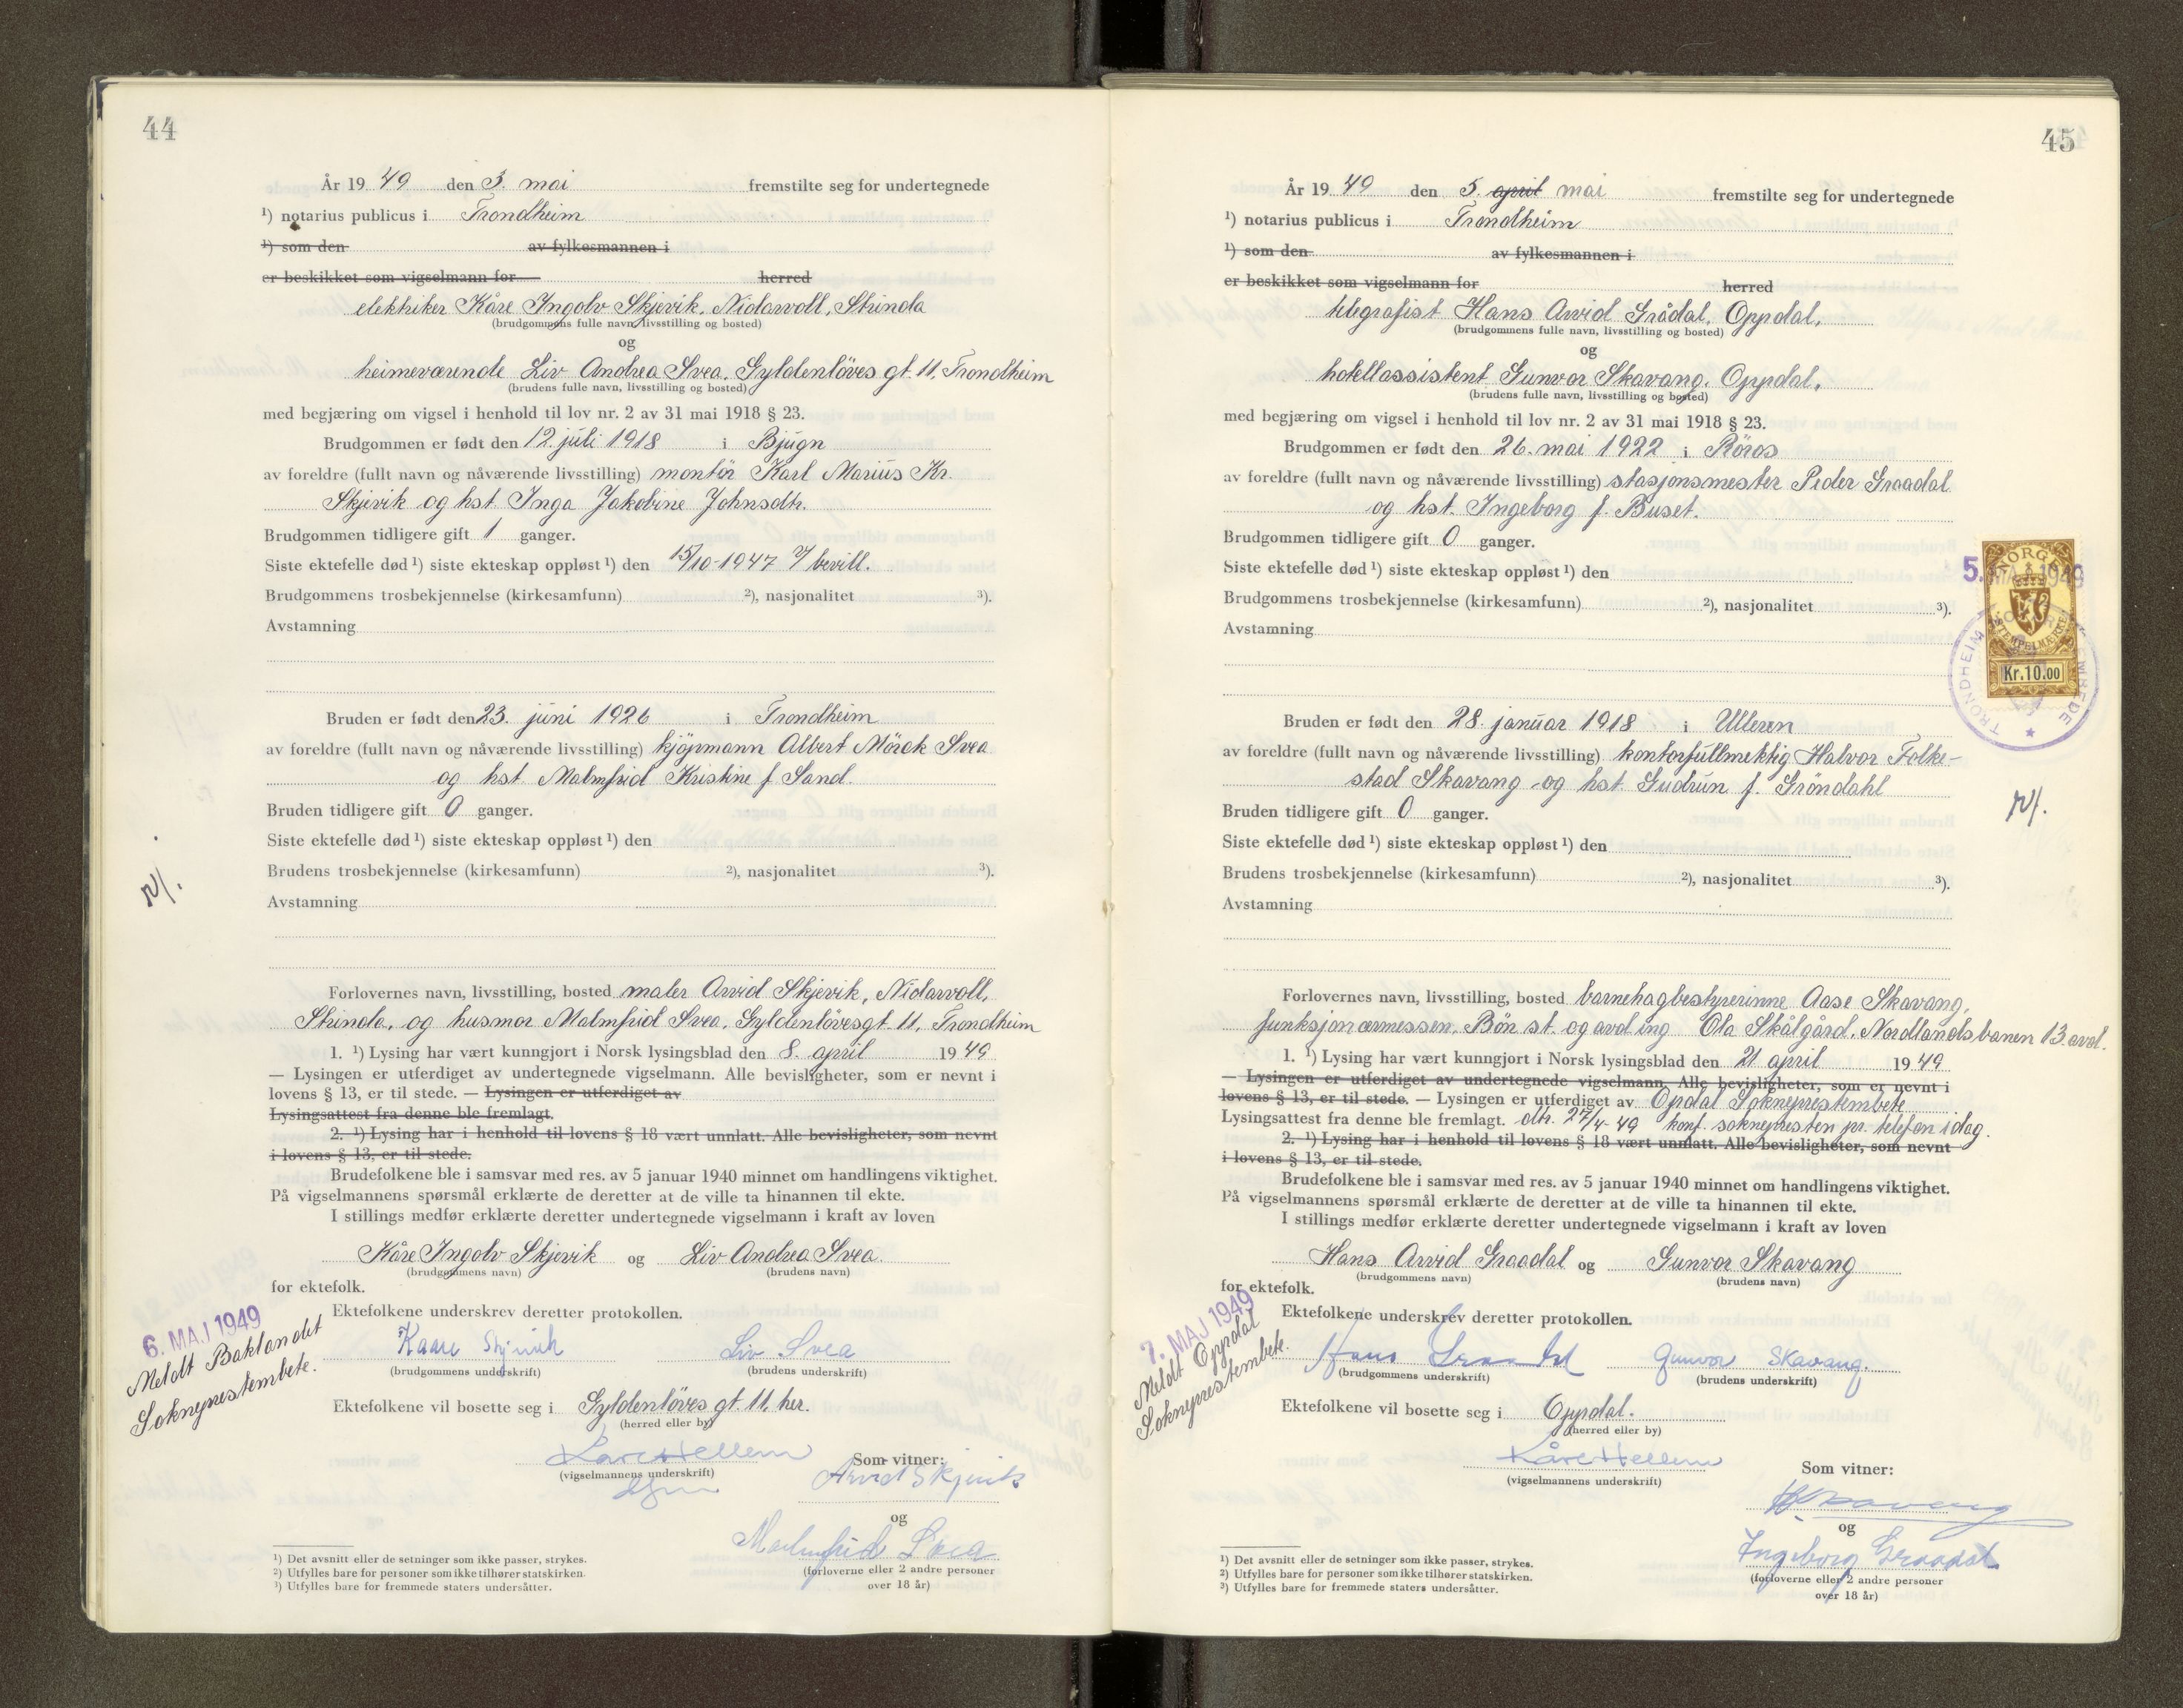 44
År 19 49 den 3. mai fremstilte seg for undertegnede
¹) notarius publicus i Trondheim
¹) som den av fylkesmannen i
er beskikket som vigselmann for herred
elektriker Kåre Ingolv Skjevik, Nidarvoll, Strinda
(brudgommens fulle navn, livsstilling og bosted)
og
heimeværende Liv Andrea Svea, Gyldenlöves gt. 11, Trondheim
(brudens fulle navn, livsstilling og bosted)
med begjæring om vigsel i henhold til lov nr. 2 av 31 mai 1918 § 23.
Brudgommen er født den 12. juli 1918 i Bjugn
av foreldre (fullt navn og nåværende livsstilling) montör Karl Marius Kr.
Skjevik og hst. Inga Jakobine Johnsdtr.
Brudgommen tidligere gift 1 ganger.
Siste ektefelle død ¹) siste ekteskap oppløst ¹) den 15/10-1947 bevill.
Brudgommens trosbekjennelse (kirkesamfunn) ²), nasjonalitet ³).
Avstamning
Bruden er født den 23. juni 1926 i Trondheim
av foreldre (fullt navn og nåværende livsstilling) kjöpmann Albert Mörck Svea
og hst. Malmfrid Kristine f. Sand.
Bruden tidligere gift 0 ganger.
Siste ektefelle død ¹) siste ekteskap oppløst ¹) den
Brudens trosbekjennelse (kirkesamfunn) ²), nasjonalitet ³).
Avstamning
Forlovernes navn, livsstilling, bosted maler Arvid Skjevik, Nidarvoll,
Strinda, og husmor Malmfrid Svea, Gyldenlövesgt. 11, Trondheim
1. ¹) Lysing har vært kunngjort i Norsk lysingsblad den 8. april 19 49
— Lysingen er utferdiget av undertegnede vigselmann. Alle bevisligheter, som er nevnt i
lovens § 13, er til stede. — Lysingen er utferdiget av
Lysingsattest fra denne ble fremlagt.
2. ¹) Lysing har i henhold til lovens § 18 vært unnlatt. Alle bevisligheter, som nevnt
i lovens § 13, er til stede.
Brudefolkene ble i samsvar med res. av 5 januar 1940 minnet om handlingens viktighet.
På vigselmannens spørsmål erklærte de deretter at de ville ta hinannen til ekte.
I stillings medfør erklærte deretter undertegnede vigselmann i kraft av loven
Kåre Ingolv Skjevik og Liv Andrea Svea.
(brudgommens navn) (brudens navn)
for ektefolk.
6. MAJ 1949
Meldt Baklandet
Sokneprestembete.
Ektefolkene underskrev deretter protokollen.
Kaare Skjevik Liv Svea
(brudgommens underskrift) (brudens underskrift)
Ektefolkene vil bosette seg i Gyldenlöves gt. 11, her.
(herred eller by)
Kåre Hellem Som vitner:
(vigselmannens underskrift) Arvid Skjevik
og
Malmfrid Svea
(forloverne eller 2 andre personer
over 18 år)
¹) Det avsnitt eller de setninger som ikke passer, strykes.
²) Utfylles bare for personer som ikke tilhører statskirken.
³) Utfylles bare for fremmede staters undersåtter.
45
År 19 49 den 5. april mai fremstilte seg for undertegnede
¹) notarius publicus i Trondheim
¹) som den av fylkesmannen i
er beskikket som vigselmann for herred
telegrafist Hans Arvid Grådal, Oppdal,
(brudgommens fulle navn, livsstilling og bosted)
og
hotellassistent Gunvor Skavang, Oppdal,
(brudens fulle navn, livsstilling og bosted)
med begjæring om vigsel i henhold til lov nr. 2 av 31 mai 1918 § 23.
Brudgommen er født den 26. mai 1922 i Röros
av foreldre (fullt navn og nåværende livsstilling) stasjonsmester Peder Graadal
og hst. Ingeborg f. Buset.
Brudgommen tidligere gift 0 ganger.
Siste ektefelle død ¹) siste ekteskap oppløst ¹) den
Brudgommens trosbekjennelse (kirkesamfunn) ²), nasjonalitet ³).
Avstamning
5. MAJ 1949
NORGE
STEMPELMERKE
Kr.10.00
TRONDHEIM
Bruden er født den 28. januar 1918 i Ulleren
av foreldre (fullt navn og nåværende livsstilling) kontorfullmektig Halvor Folke-
stad Skavang og hst. Gudrun f. Gröndahl
Bruden tidligere gift 0 ganger.
Siste ektefelle død ¹) siste ekteskap oppløst ¹) den
Brudens trosbekjennelse (kirkesamfunn) ²), nasjonalitet ³).
Avstamning
Forlovernes navn, livsstilling, bosted barnehagbestyrerinne Aase Skavang,
funksjonærmessen, Bön st. og avd.ing Ola Skålgård, Nordlandsbanen 13. avd.
1. ¹) Lysing har vært kunngjort i Norsk lysingsblad den 21 april 19 49
— Lysingen er utferdiget av undertegnede vigselmann. Alle bevisligheter, som er nevnt i
lovens § 13, er til stede. — Lysingen er utferdiget av Opdal Sokneprestembete
Lysingsattest fra denne ble fremlagt. dtr. 27/4-49 konf. soknepresten pr. telefon idag.
2. ¹) Lysing har i henhold til lovens § 18 vært unnlatt. Alle bevisligheter, som nevnt
i lovens § 13, er til stede.
Brudefolkene ble i samsvar med res. av 5 januar 1940 minnet om handlingens viktighet.
På vigselmannens spørsmål erklærte de deretter at de ville ta hinannen til ekte.
I stillings medfør erklærte deretter undertegnede vigselmann i kraft av loven
Hans Arvid Graadal og Gunvor Skavang
(brudgommens navn) (brudens navn)
for ektefolk.
7. MAJ 1949
Meldt Oppdal
Sokneprestembete.
Ektefolkene underskrev deretter protokollen.
Hans Graadal Gunvor Skavang.
(brudgommens underskrift) (brudens underskrift)
Ektefolkene vil bosette seg i Oppdal.
(herred eller by)
Kåre Hellem
(vigselmannens underskrift)
Som vitner:
Skavang
og
Ingeborg Graadal
(forloverne eller 2 andre personer
over 18 år)
¹) Det avsnitt eller de setninger som ikke passer, strykes.
²) Utfylles bare for personer som ikke tilhører statskirken.
³) Utfylles bare for fremmede staters undersåtter.